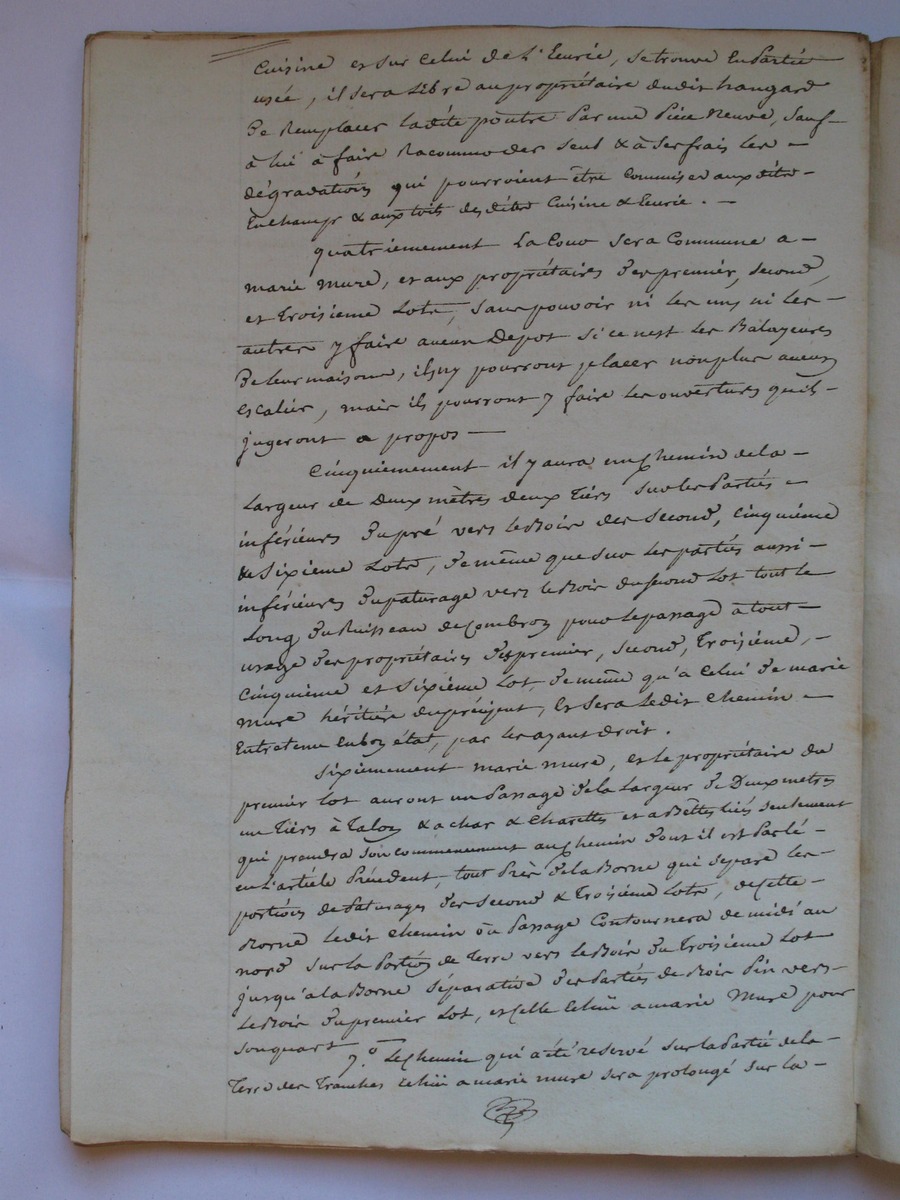 Cuisine et sur Celui de l'Ecurie, se trouve En Partie
usée, il sera Libre au propriétaire dudit hangard
De Remplacer ladite poûtre Par une Piéce Neuve, Sauf
à lui à faire Racommoder seul & à ses frais les
dégradations qui pourroient être Commises aux dits
En champs & aux toits desdits Cuisine & Ecurie.
quatriémement La Cour sera Commune a
marie mure, et aux propriétaires des premier, second,
et Troisieme Lots, sans pouvoir ni les uns ni les
autres y faire aucun Depot si ce n'est les Balayeures
De leur maisons, ils ny pourront placer non plus aucun
escalier, mais ils pourront y faire les ouvertures quils
jugeront a propos
Cinquiemement il y aura un Chemin de la
Largeur de Deux mètres deux Tiers sur les Parties
inférieures Du pré vers le Boir des second, Cinquiéme
& Sixieme Lots, De même que sur les parties aussi
inférieures Du paturage vers le Boir du second Lot tout le
Long Du Ruisseau de Combroy pour le passage à tout
usage Des propriétaires Des premier, second, Troisiéme,
Cinquiéme et Sixiéme Lot De même qu'a Celui De marie
Mure héritiére du préciput, Et Sera Ledit Chemin
Entretenu En bon état, par les ayant droit.
Sixiemement marie mure, et le propriétaire du
premier Lot auront un Passage De la Largeur De Deux metres
un Tiers à Talon & a char & Charettes et a Bêttes liés seulement
qui prendra son commencement au Chemin Dont il est Parlé
en L'article Précedent, tout Près De la Borne qui separe les
portions de Paturages Des second & Troisiéme Lots, de Cette
Borne ledit Chemin ou Passage Contournera de midi au
nord sur la Portion de Terre vers le Boir Du Troisieme Lot
jusqu'a la Borne séparative Des Parties de Boir Pin vers
le Boir Du premier Lot, et Celle Echüe a marie Mure pour
son quart 7.º Le Chemin qui a été reservé sur la Partie de la
Terre des Tranches Echüe a marie mure sera prolongé sur la